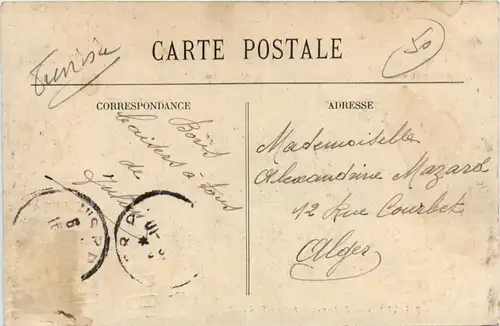 Tunisie
50
CARTE POSTALE
CORRESPONDANCE
ADRESSE
Bons
baisers à tous
de
Mademoiselle
Alexandrine Mazard
12 Rue Courbet
Alger